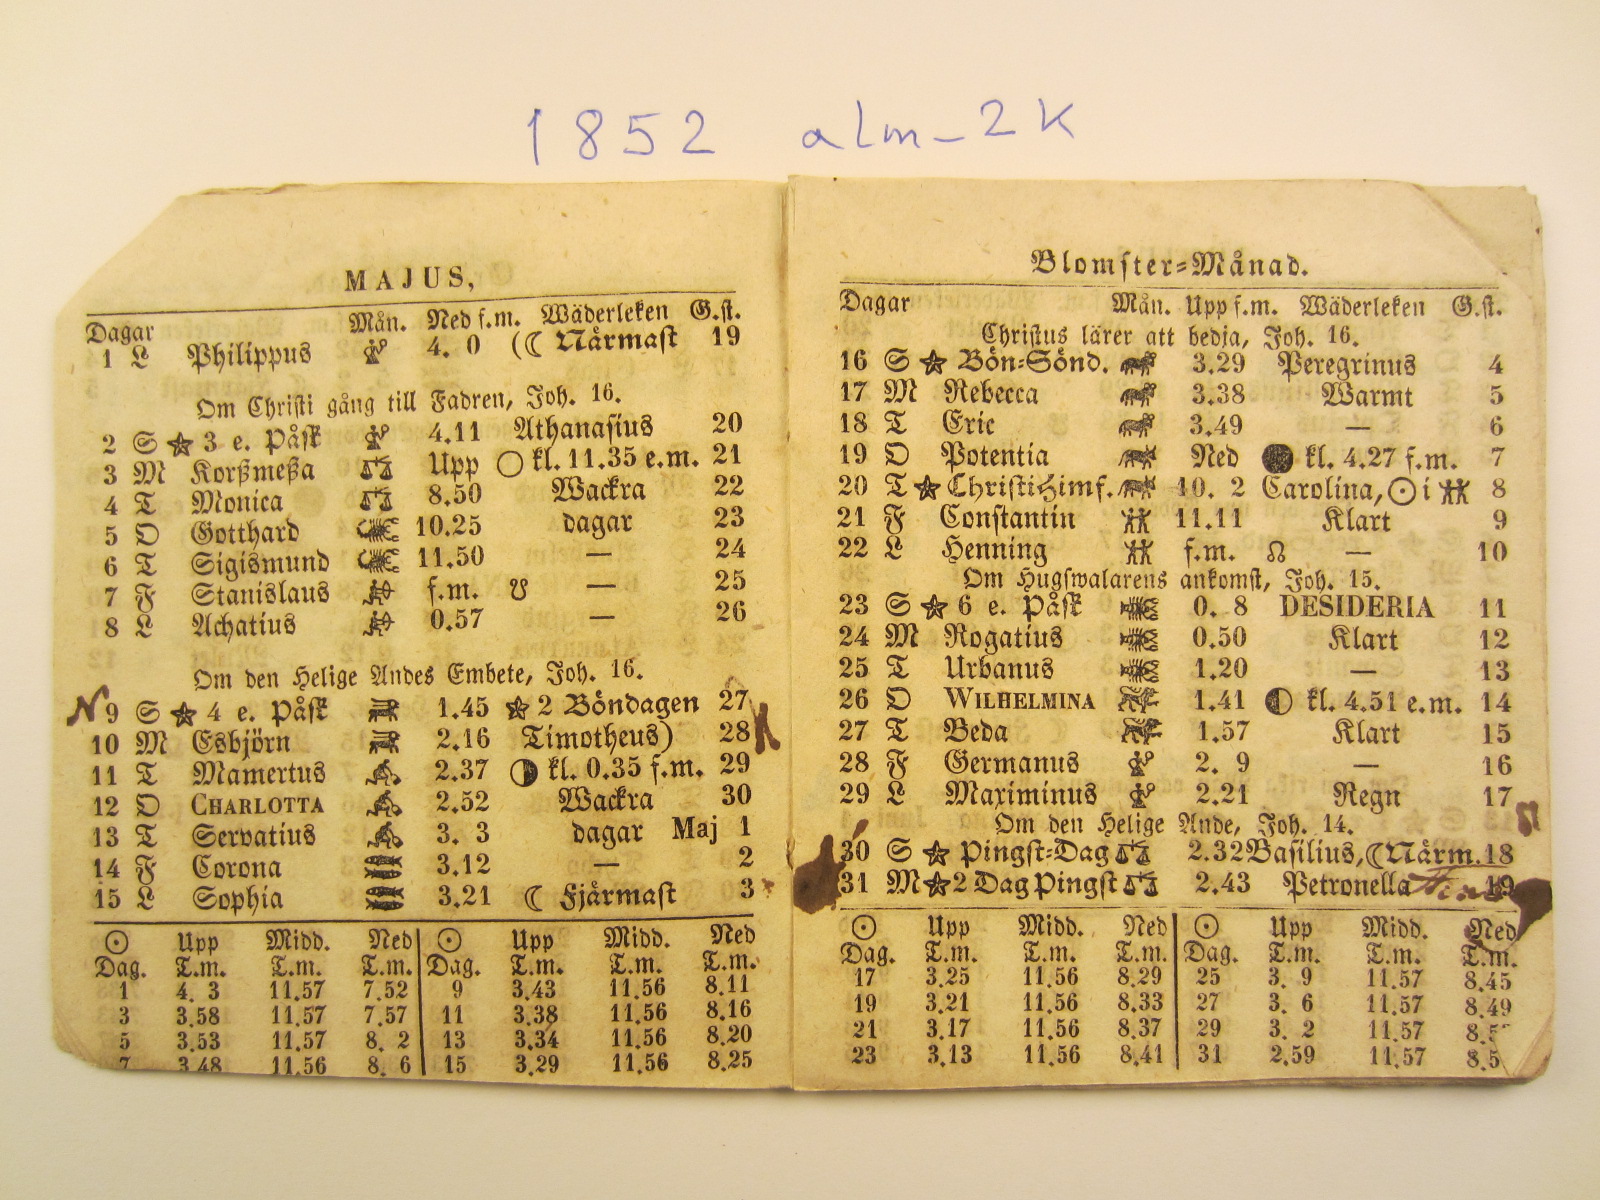 1852 alm-2K
MAJUS,
Dagar Mån. Ned f.m. Wäderleken G.st.
1 L Philippus 4. 0 (☾ Närmast 19
Om Christi gång till Fadren, Joh. 16.
2 S ★ 3 e. Påsk 4.11 Athanasius 20
3 M Korßmeßa Upp ○ kl. 11.35 e.m. 21
4 T Monica 8.50 Wackra 22
5 O Gotthard 10.25 dagar 23
6 T Sigismund 11.50 — 24
7 F Stanislaus f.m. ☋ — 25
8 L Achatius 0.57 — 26
Om den Helige Andes Embete, Joh. 16.
N 9 S ★ 4 e. Påsk 1.45 ★ 2 Böndagen 27
10 M Esbjörn 2.16 Timotheus) 28
11 T Mamertus 2.37 ◑ kl. 0.35 f.m. 29
12 O CHARLOTTA 2.52 Wackra 30
13 T Servatius 3. 3 dagar Maj 1
14 F Corona 3.12 — 2
15 L Sophia 3.21 ☾ Fjärmast 3
☉ Upp Midd. Ned ☉ Upp Midd. Ned
Dag. T.m. T.m. T.m. Dag. T.m. T.m. T.m.
1 4. 3 11.57 7.52 9 3.43 11.56 8.11
3 3.58 11.57 7.57 11 3.38 11.56 8.16
5 3.53 11.57 8. 2 13 3.34 11.56 8.20
7 3.48 11.56 8. 6 15 3.29 11.56 8.25
Blomster=Månad.
Dagar Mån. Upp f.m. Wäderleken G.st.
Christus lärer att bedja, Joh. 16.
16 S ★ Bön=Sönd. 3.29 Peregrinus 4
17 M Rebecca 3.38 Warmt 5
18 T Eric 3.49 — 6
19 O Potentia Ned ● kl. 4.27 f.m. 7
20 T ★ Christi Himf. 10. 2 Carolina, ☉ i ♊ 8
21 F Constantin 11.11 Klart 9
22 L Henning f.m. ☊ — 10
Om Hugswalarens ankomst, Joh. 15.
23 S ★ 6 e. Påsk 0. 8 DESIDERIA 11
24 M Rogatius 0.50 Klart 12
25 T Urbanus 1.20 — 13
26 O WILHELMINA 1.41 ◐ kl. 4.51 e.m. 14
27 T Beda 1.57 Klart 15
28 F Germanus 2. 9 — 16
29 L Maximinus 2.21 Regn 17
Om den Helige Ande, Joh. 14.
30 S ★ Pingst=Dag 2.32 Basilius, ☾ Närm. 18
31 M ★ 2 Dag Pingst 2.43 Petronella 19
☉ Upp Midd. Ned ☉ Upp Midd. Ned
Dag. T.m. T.m. T.m. Dag. T.m. T.m. T.m.
17 3.25 11.56 8.29 25 3. 9 11.57 8.45
19 3.21 11.56 8.33 27 3. 6 11.57 8.49
21 3.17 11.56 8.37 29 3. 2 11.57
23 3.13 11.56 8.41 31 2.59 11.57